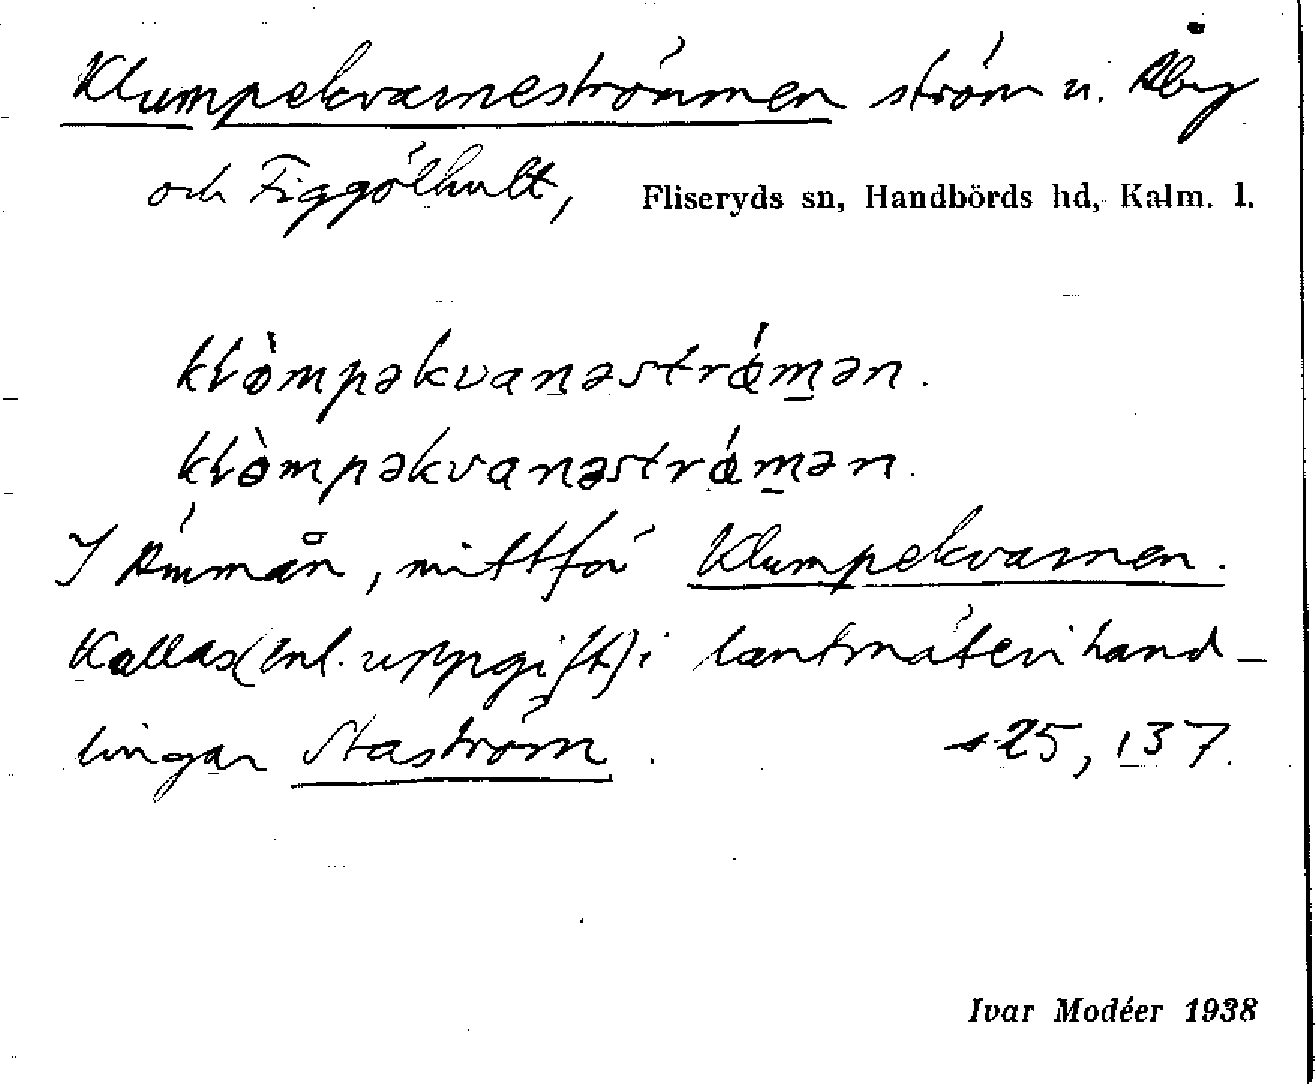 Klumpekvarneströmmen ström u. Åby
och Figgölhult, Fliseryds sn, Handbörds hd, Kalm. l.
klòmpəkvanəstrǿmən.
klòmpəkvanəstrǿmən.
I Ämmån, mittför Klumpekvarnen.
Kallas (enl. uppgift) i lantmäterihand-
lingar Staström. 25, 137.
Ivar Modéer 1938